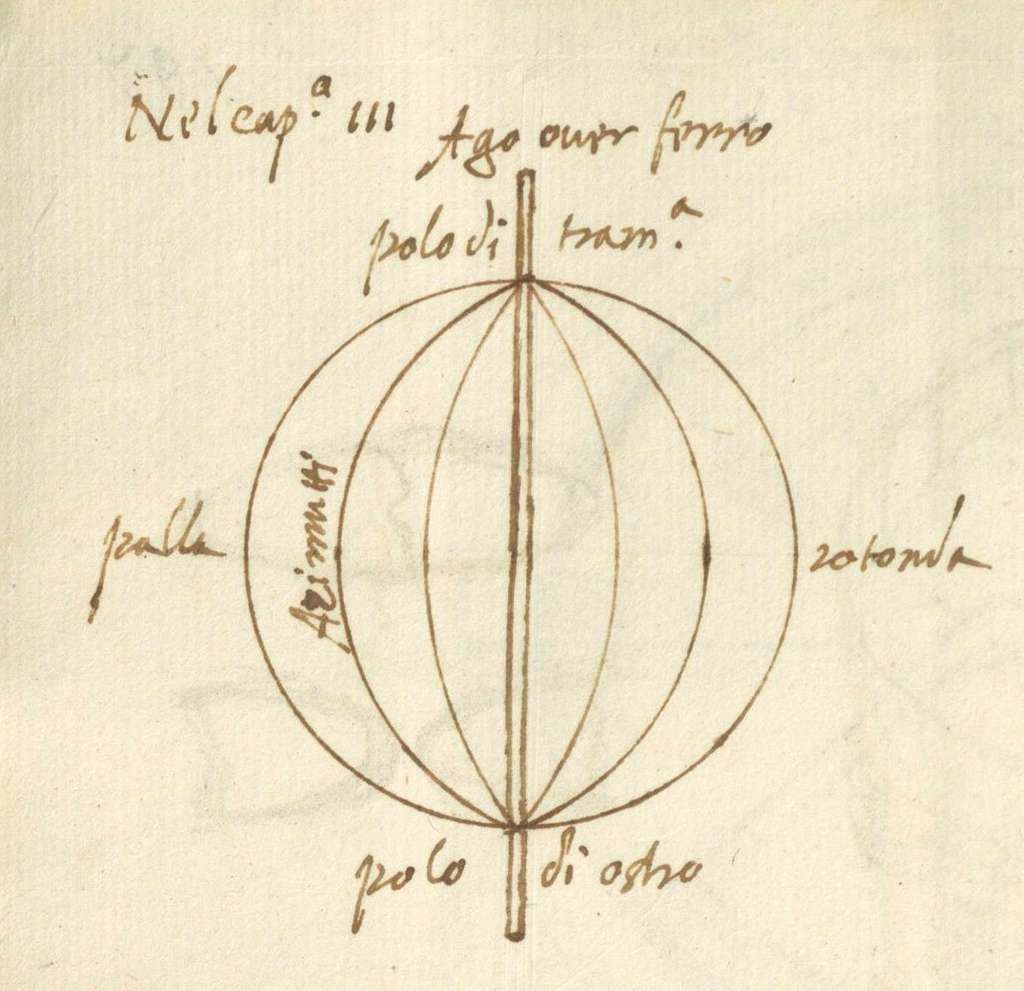 Nel cap.ª III
Ago ouer ferro
polo di tram.ª
Azimutti
palla
rotonda
polo di ostro